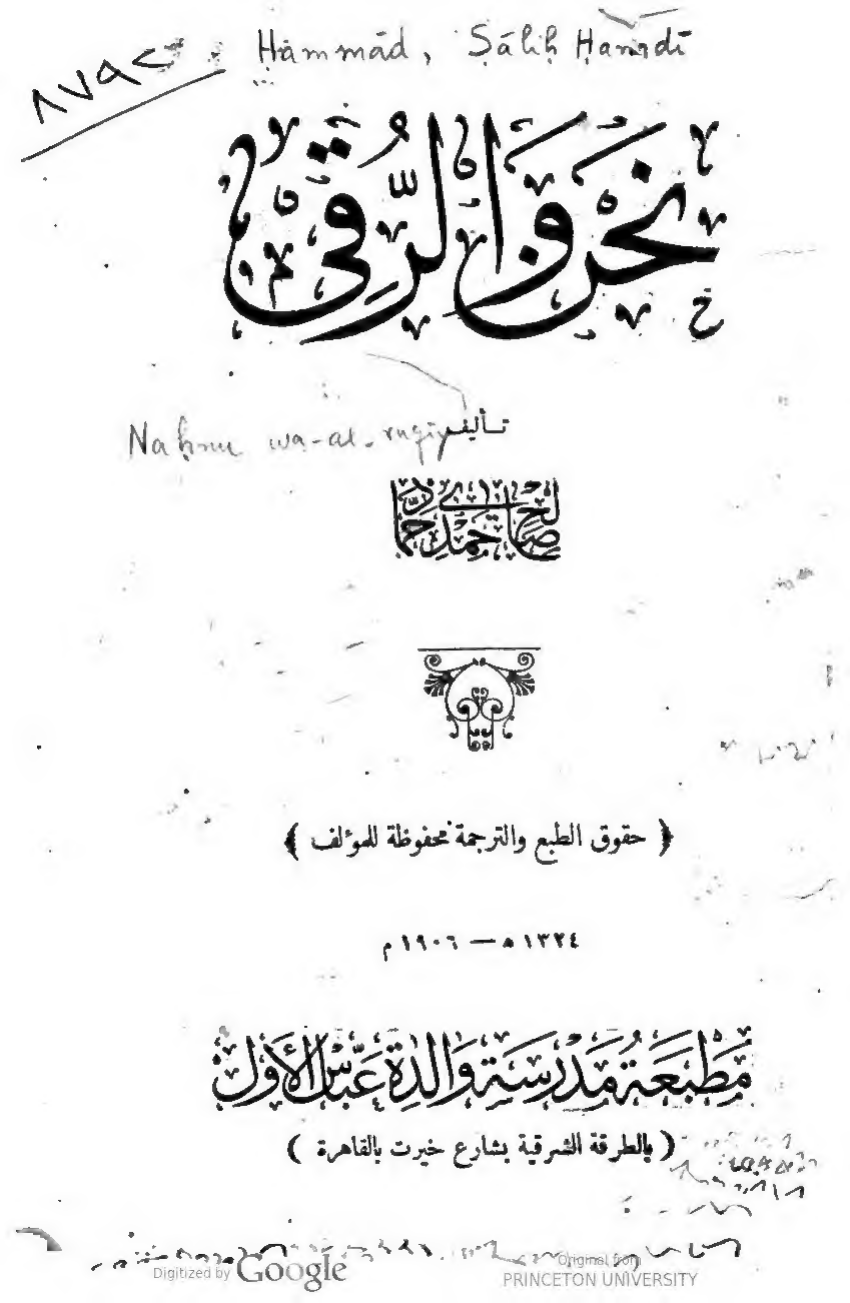 Ḥammād, Ṣāliḥ Ḥamdī
٨٧٩٢
نَحْنُ وَالرُّقِيّ
تأليف
Naḥnu wa-al-ruqīy
صالح حمدي حماد
﴿ حقوق الطبع والترجمة محفوظة للمؤلف ﴾
١٣٢٤ ه — ١٩٠٦ م
مَطْبَعَةُ مَدْرَسَةِ وَالِدَةِ عَبَّاسِ الأَوَّلِ
( بالطرقة الشرقية بشارع خيرت بالقاهرة )
Digitized by Google
Original from
PRINCETON UNIVERSITY